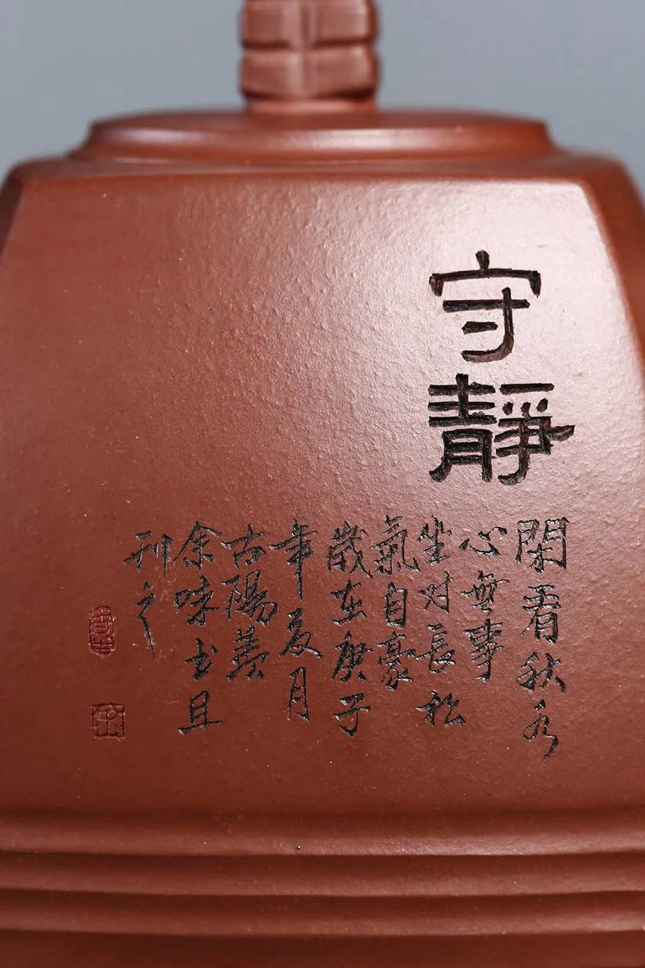 守靜
閑看秋水
心無事
坐对長松
氣自豪
歲在庚子
年夏月
古陽羨
余味书且
刊之